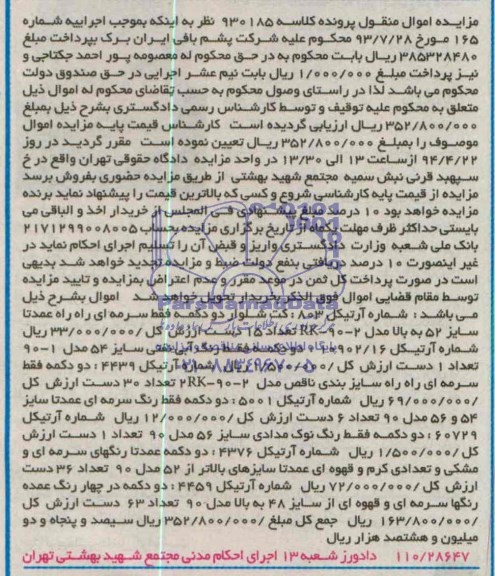 مزایده اموال منقول پرونده کلاسه ۹۳۰۱۸۵ نظر به اینکه بموجب اجراییه شماره
۱۶۵ مورخ ۹۳/۷/۲۸ محکوم علیه شرکت پشم بافی ایران برک بپرداخت مبلغ
۳۸۵۳۲۸۴۸۰ ریال بابت محکوم به در حق محکوم له معصومه پور احمد جکتاجی و
نیز پرداخت مبلغ ۱/۰۰۰/۰۰۰ ریال بابت نیم عشر اجرایی در حق صندوق دولت
محکوم می باشد لذا در راستای وصول محکوم به حسب تقاضای محکوم له اموال ذیل
متعلق به محکوم علیه توقیف و توسط کارشناس رسمی دادگستری بشرح ذیل بمبلغ
۳۵۲/۸۰۰/۰۰۰ ریال ارزیابی گردیده است کارشناس قیمت پایه مزایده اموال
موصوف را بمبلغ ۳۵۲/۸۰۰/۰۰۰ ریال تعیین نموده است مقرر گردید در روز
۹۴/۴/۲۲ ازساعت ۱۳ الی ۱۳/۳۰ در واحد مزایده دادگاه حقوقی تهران واقع در خ
سپهبد قرنی نبش سمیه مجتمع شهید بهشتی از طریق مزایده حضوری بفروش برسد
مزایده از قیمت پایه کارشناسی شروع و کسی که بالاترین قیمت را پیشنهاد نماید برنده
مزایده خواهد بود ۱۰ درصد مبلغ پیشنهادی فی المجلس از خریدار اخذ و الباقی می
بایستی حداکثر ظرف مهلت یکماه از تاریخ برگزاری مزایده بحساب ۲۱۷۱۲۹۹۰۰۸۰۰۵
بانک ملی شعبه وزارت دادگستری واریز و قبض آن را تسلیم اجرای احکام نماید در
غیر اینصورت ۱۰ درصد دریافتی بنفع دولت ضبط و مزایده تجدید خواهد شد بدیهی
است در صورت پرداخت کل ثمن در موعد مقرر و عدم اعتراض بمزایده و تایید مزایده
توسط مقام قضایی اموال فوق الذکر بخریدار تحویل خواهد شد اموال بشرح ذیل
می باشد : شماره آرتیکل ۸۰۳ : کت شلوار دو دکمه فقط سرمه ای راه راه عمدتا
سایز ۵۲ به بالا مدل ۲-۹۰-RK تعداد ۱۵ دست ارزش کل /۳۳/۰۰۰/۰۰۰ ریال
شماره آرتیکل ۹۰۲/۱۶ دو دکمه فقط رنگ آبی نفتی سایز ۵۴ مدل ۱-۹۰
تعداد ۱ دست ارزش کل ریال شماره آرتیکل ۴۴۳۹ : دو دکمه فقط
سرمه ای راه راه سایز بندی ناقص مدل ۲-۹۰-RK۲ تعداد ۳۰ دست ارزش کل
/۶۹/۰۰۰/۰۰۰ ریال شماره آرتیکل ۵۰۰۱ : دو دکمه فقط رنگ سرمه ای عمدتا سایز
۵۴ و ۵۶ مدل ۹۰ تعداد ۶ دست ارزش کل /۱۲/۰۰۰/۰۰۰ ریال شماره آرتیکل
۶۰۷۲۹ : دو دکمه فقط رنگ نوک مدادی سایز ۵۶ مدل ۹۰ تعداد ۱ دست ارزش
کل /۱/۵۰۰/۰۰۰ ریال شماره آرتیکل ۴۳۷۶ : دو دکمه عمدتا رنگهای سرمه ای و
مشکی و تعدادی کرم و قهوه ای عمدتا سایزهای بالاتر از ۵۲ مدل ۹۰ تعداد ۳۶ دست
ارزش کل /۷۲/۰۰۰/۰۰۰ ریال شماره آرتیکل ۴۴۵۹ : دو دکمه در چهار رنگ عمده
رنگها سرمه ای و قهوه ای از سایز ۴۸ به بالا مدل ۹۰ تعداد ۶۳ دست ارزش کل
/۱۶۳/۸۰۰/۰۰۰ ریال جمع کل مبلغ /۳۵۲/۸۰۰/۰۰۰ ریال سیصد و پنجاه و دو
میلیون و هشتصد هزار ریال
۱۱۰/۲۸۶۴۷ دادورز شعبه ۱۳ اجرای احکام مدنی مجتمع شهید بهشتی تهران